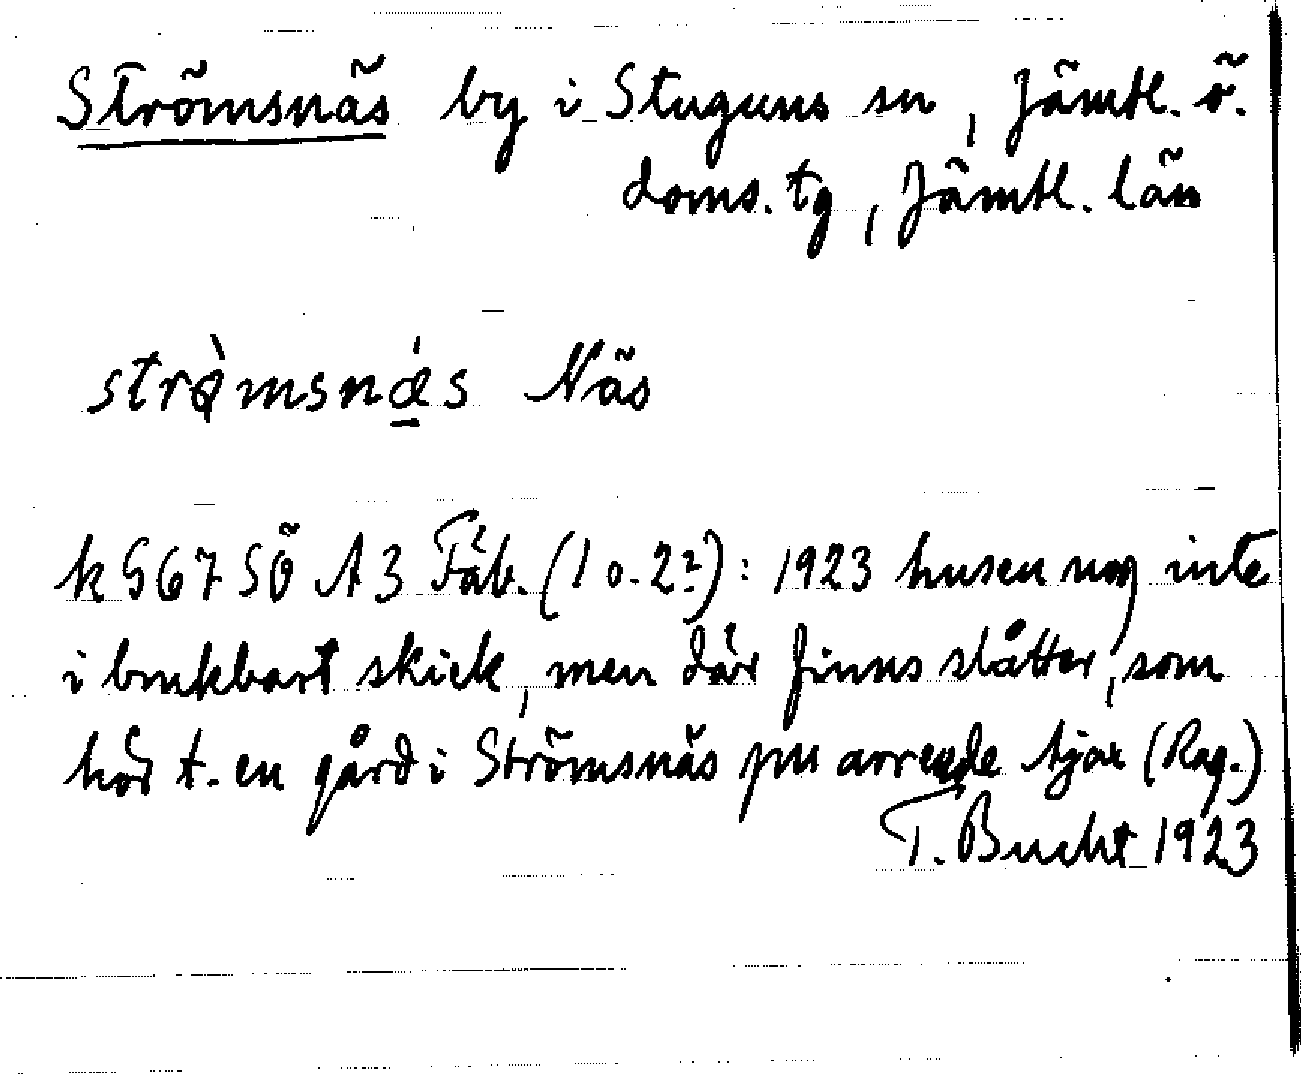 Strömsnäs by i Stuguns sn, Jämtl. ö.
doms. tg, Jämtl. län
strø̀msnǽs Näs
k 567 SÖ A3 Fäb. (1 o. 2?): 1923 husen nog inte
i brukbart skick, men där finns slåtter, som
hör t. en gård i Strömsnäs på arrende (Rag.)
T. Bucht 1923